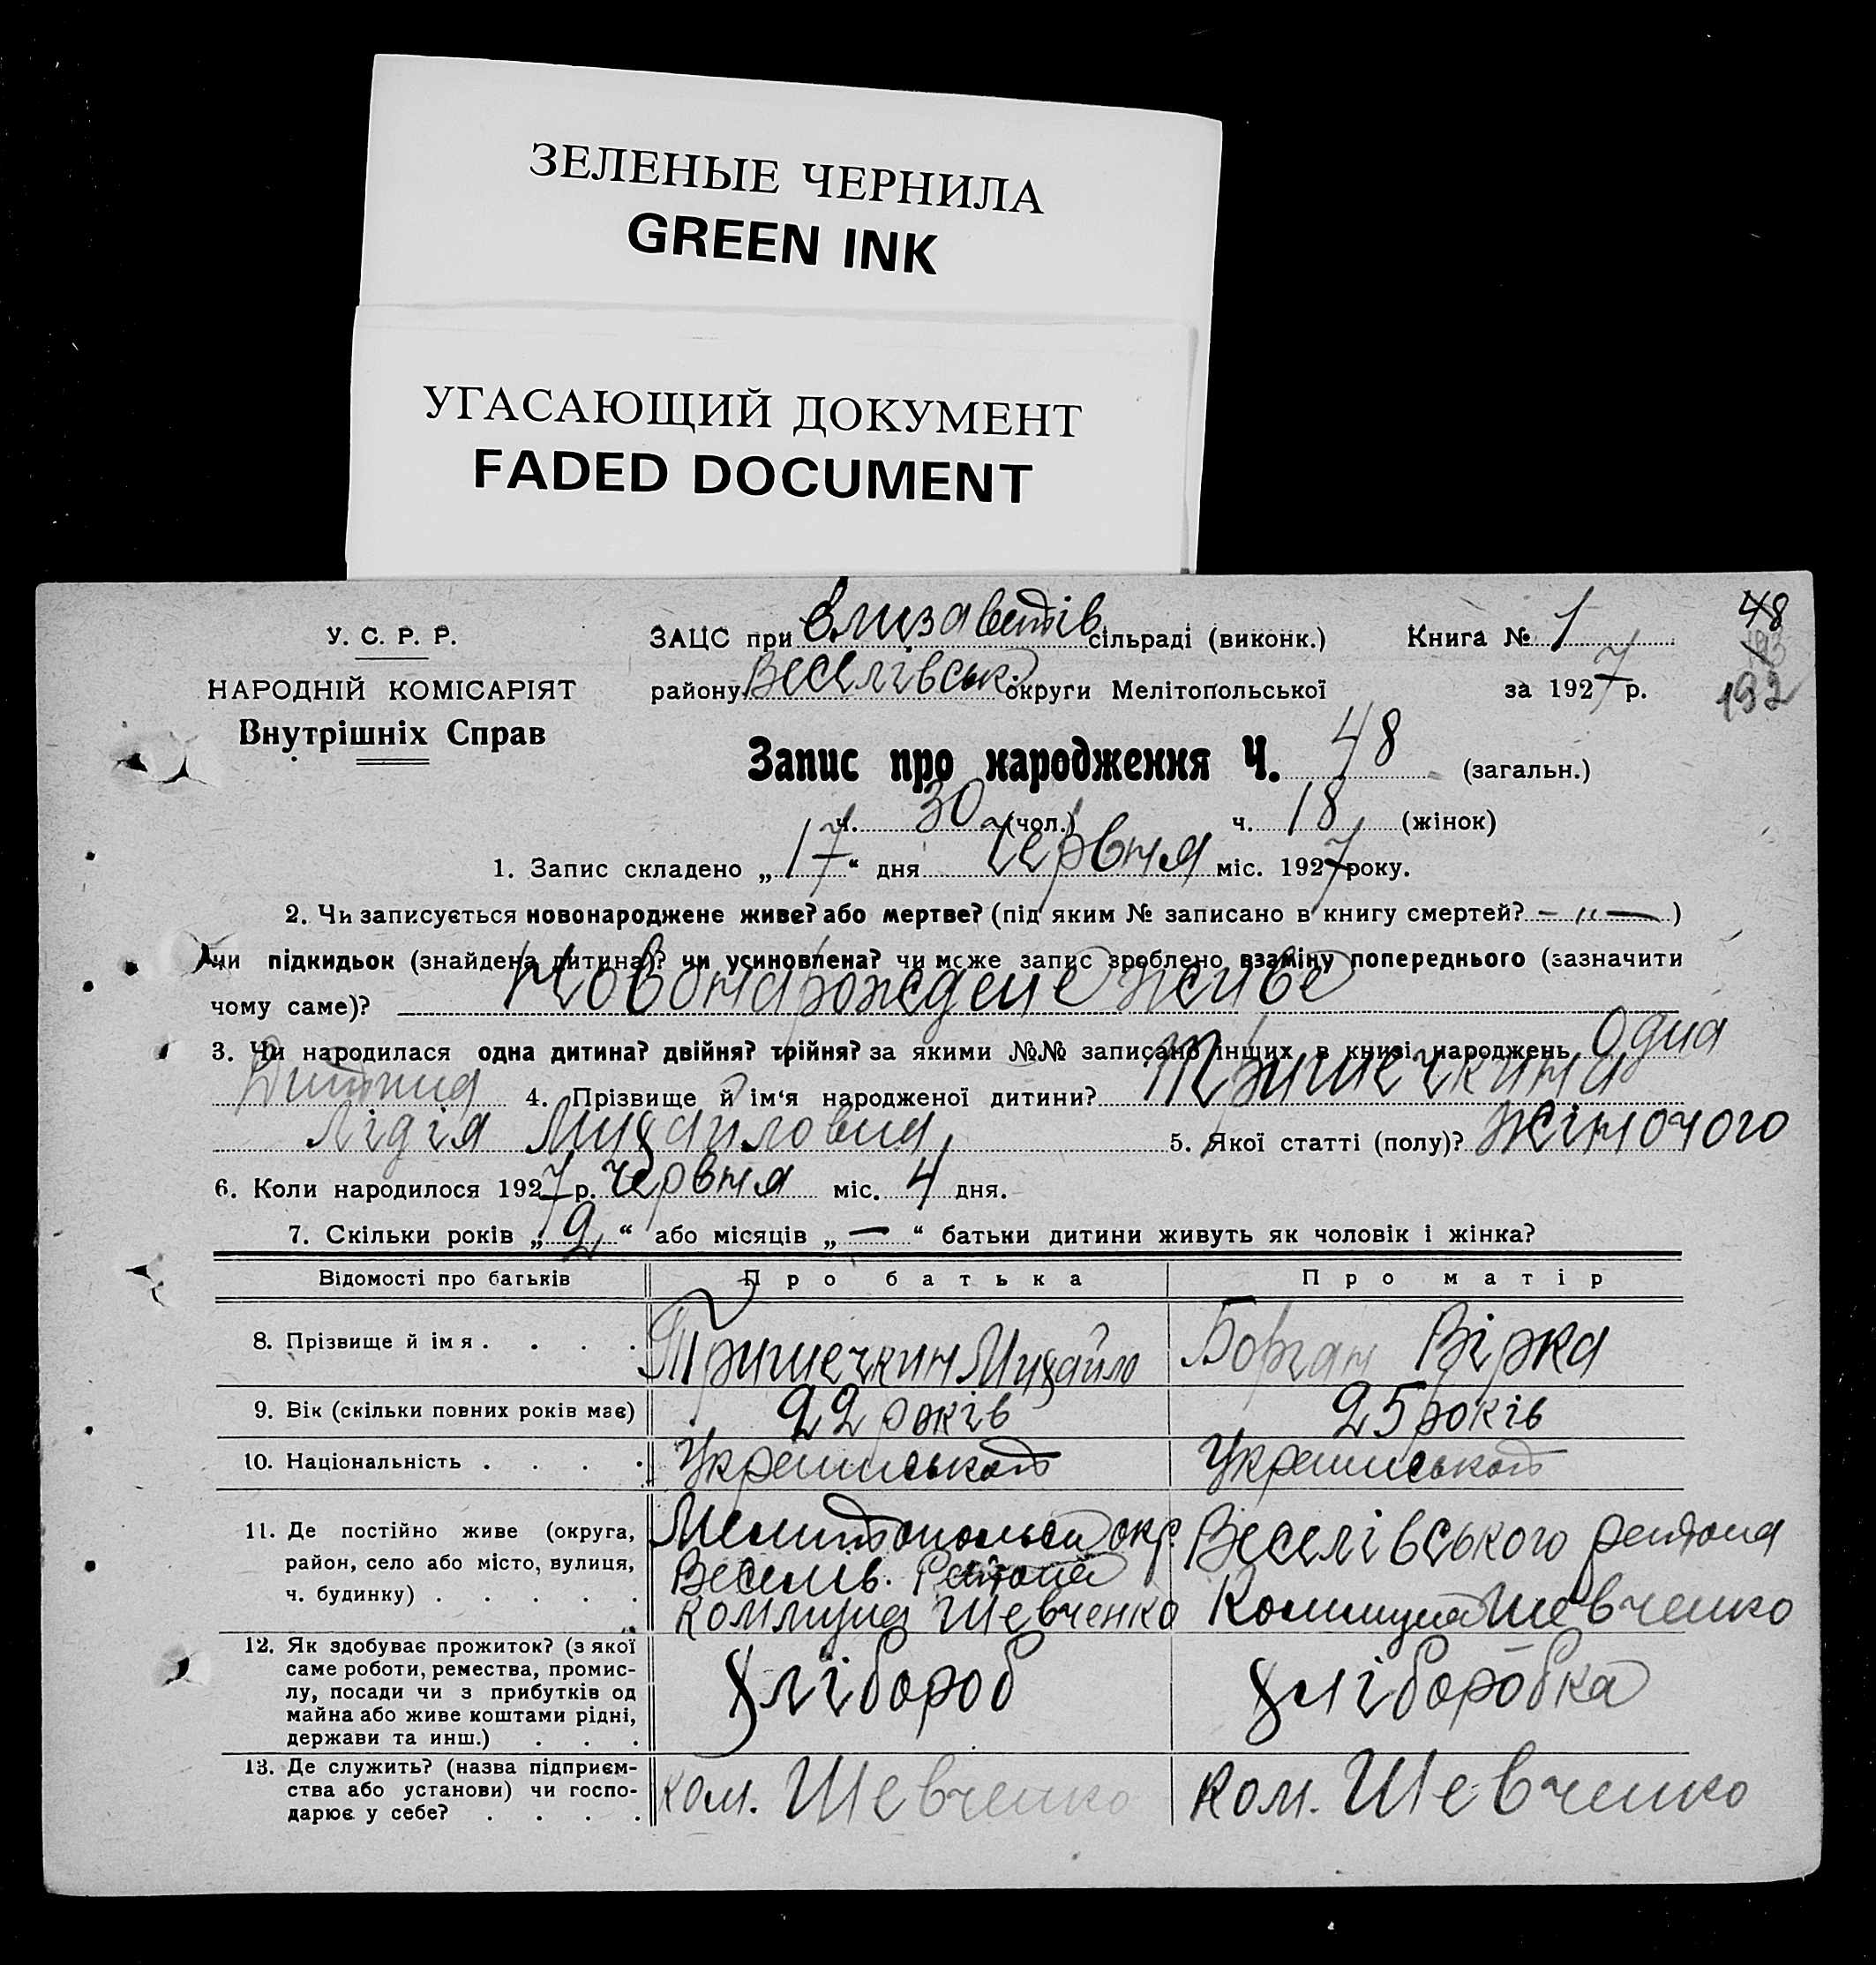 ЗЕЛЕНЫЕ ЧЕРНИЛА
GREEN INK
УГАСАЮЩИЙ ДОКУМЕНТ
FADED DOCUMENT
У. С. Р. Р.
НАРОДНІЙ КОМІСАРІЯТ
Внутрішніх Справ
ЗАЦС при Єлизаветів сільраді (виконк.) Книга № 1 48
району Веселівськ округи Мелітопольської за 1927 р. 192
Запис про народження Ч. 48 (загальн.)
ч. 30 (чол.) ч. 18 (жінок)
1. Запис складено „17“ дня червня міс. 1927 року.
2. Чи записується новонароджене живе? або мертве? (під яким № записано в книгу смертей? – „ –)
чи підкидьок (знайдена дитина)? чи усиновлена? чи може запис зроблено взаміну попереднього (зазначити
чому саме)? Новонарождене живе
3. Чи народилася одна дитина? двійня? трійня? за якими №№ записано інших в книзі народжень Одна
Дитина 4. Прізвище й ім‘я народженої дитини? Тришечкина
Лідія Михайловна 5. Якої статті (полу)? жіночого
6. Коли народилося 1927 р. червня міс. 4 дня.
7. Скільки років „2“ або місяців „—“ батьки дитини живуть як чоловік і жінка?
Відомості про батьків Про батька Про матір
8. Прізвище й імя . . . . Тришечкин Михайло Вірка
9. Вік (скільки повних років має) 22 років 25 років
10. Національність . . . .
11. Де постійно живе (округа, окр. Веселівського района
район, село або місто, вулиця, Веселів. Района
ч. будинку) . . . . . Коммуна Шевченко Коммуна Шевченко
12. Як здобуває прожиток? (з якої
саме роботи, ремества, промис-
лу, посади чи з прибутків од хлібороб хліборобка
майна або живе коштами рідні,
держави та инш.) . . .
13. Де служить? (назва підприєм-
ства або установи) чи госпо- ком. Шевченко Ком. Шевченко
дарює у себе? . . . .